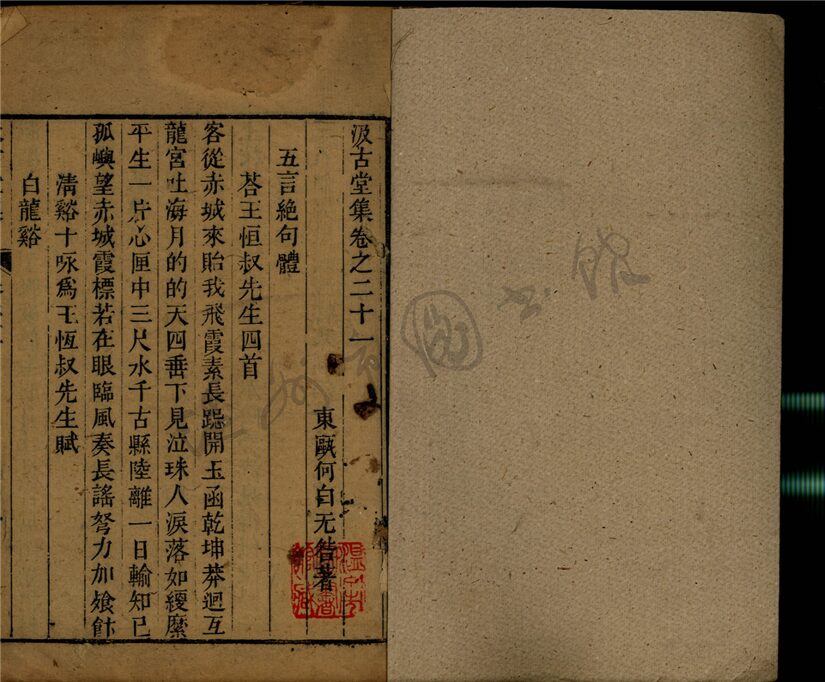 汲古堂集卷之二十一
東甌何白无咎著
五言絶句體
荅王恒叔先生四首
客從赤城來貽我飛霞素長跽開玉函乾坤莽迴互
龍宮吐海月的的天四垂下見泣珠人淚落如綆縻
平生一片心匣中三尺水千古縣陸離一日輸知已
孤嶼望赤城霞標若在眼臨風奏長謠努力加飧飰
清谿十咏爲王恆叔先生賦
白龍谿